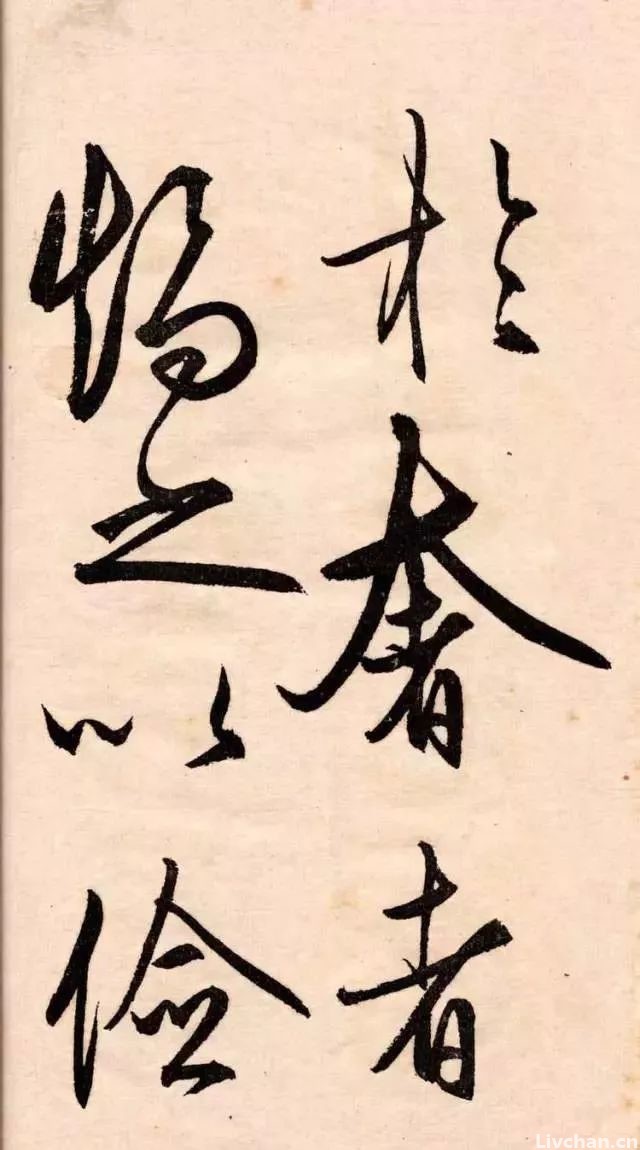 於奢者
矯之以儉
Livchan.cn